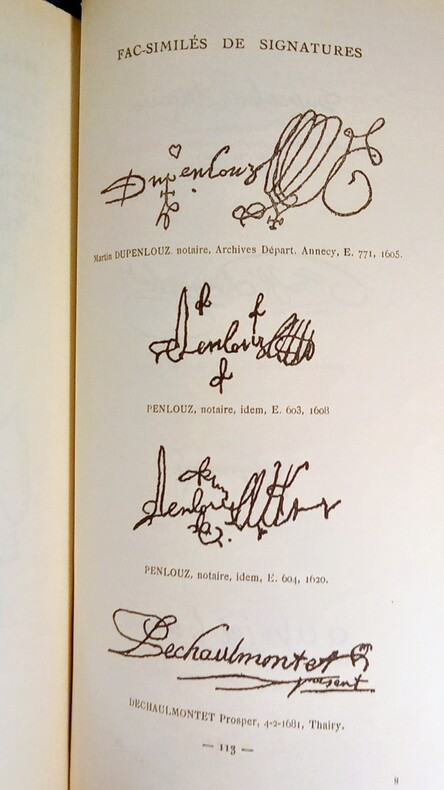 FAC-SIMILÉS DE SIGNATURES
Dupenlouz
Martin DUPENLOUZ, notaire, Archives Départ. Annecy, E. 771, 1605.
PENLOUZ, notaire, idem, E. 603, 1608
PENLOUZ, notaire, idem, E. 604, 1620.
Dechaulmontet
present
DECHAULMONTET Prosper, 4-2-1681, Thairy.
— 113 —
8